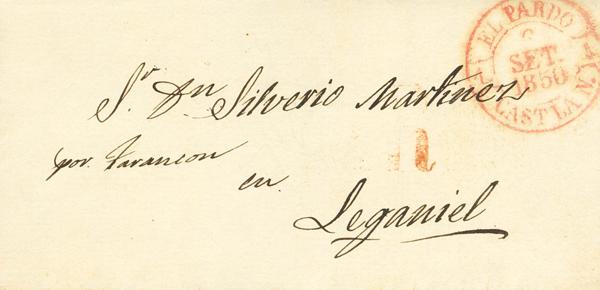 EL PARDO
6
SET.
1850
CAST LA N.
Sr. Dn Silverio Martinez
por. Tarancon
en
Leganiel